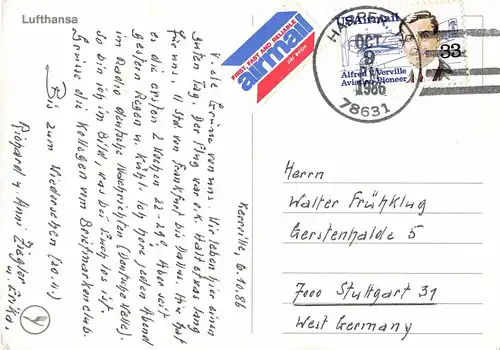 Lufthansa
FIRST, FAST AND RELIABLE
airmail
par avion
USAirmail
33
Alfred V. Verville
Aviation Pioneer
HARPER
OCT
9
1986
78631
Kerrville, 6.10.86
Viele Grüsse von uns. Wir leben hier einen
guten Tag. Der Flug war o.k. Halt etwas lang
für uns. 11 Std von Frankfurt bis Dallas. Hier hat
es die ersten 2 Wochen 25-29°. Aber seit
gestern Regen u. Kühl. Ich höre jeden Abend
im Radio deutsche Nachrichten (Deutsche Welle).
So bin ich im Bild, was bei Euch los ist.
Grüsse die Kollegen vom Briefmarkenclub.
Bis zum Wiedersehen (20.11)
Richard u. Anni Ziegler
u. Erika.
Herrn
Walter Frühklug
Gerstenhalde 5
7000 Stuttgart 31
West Germany